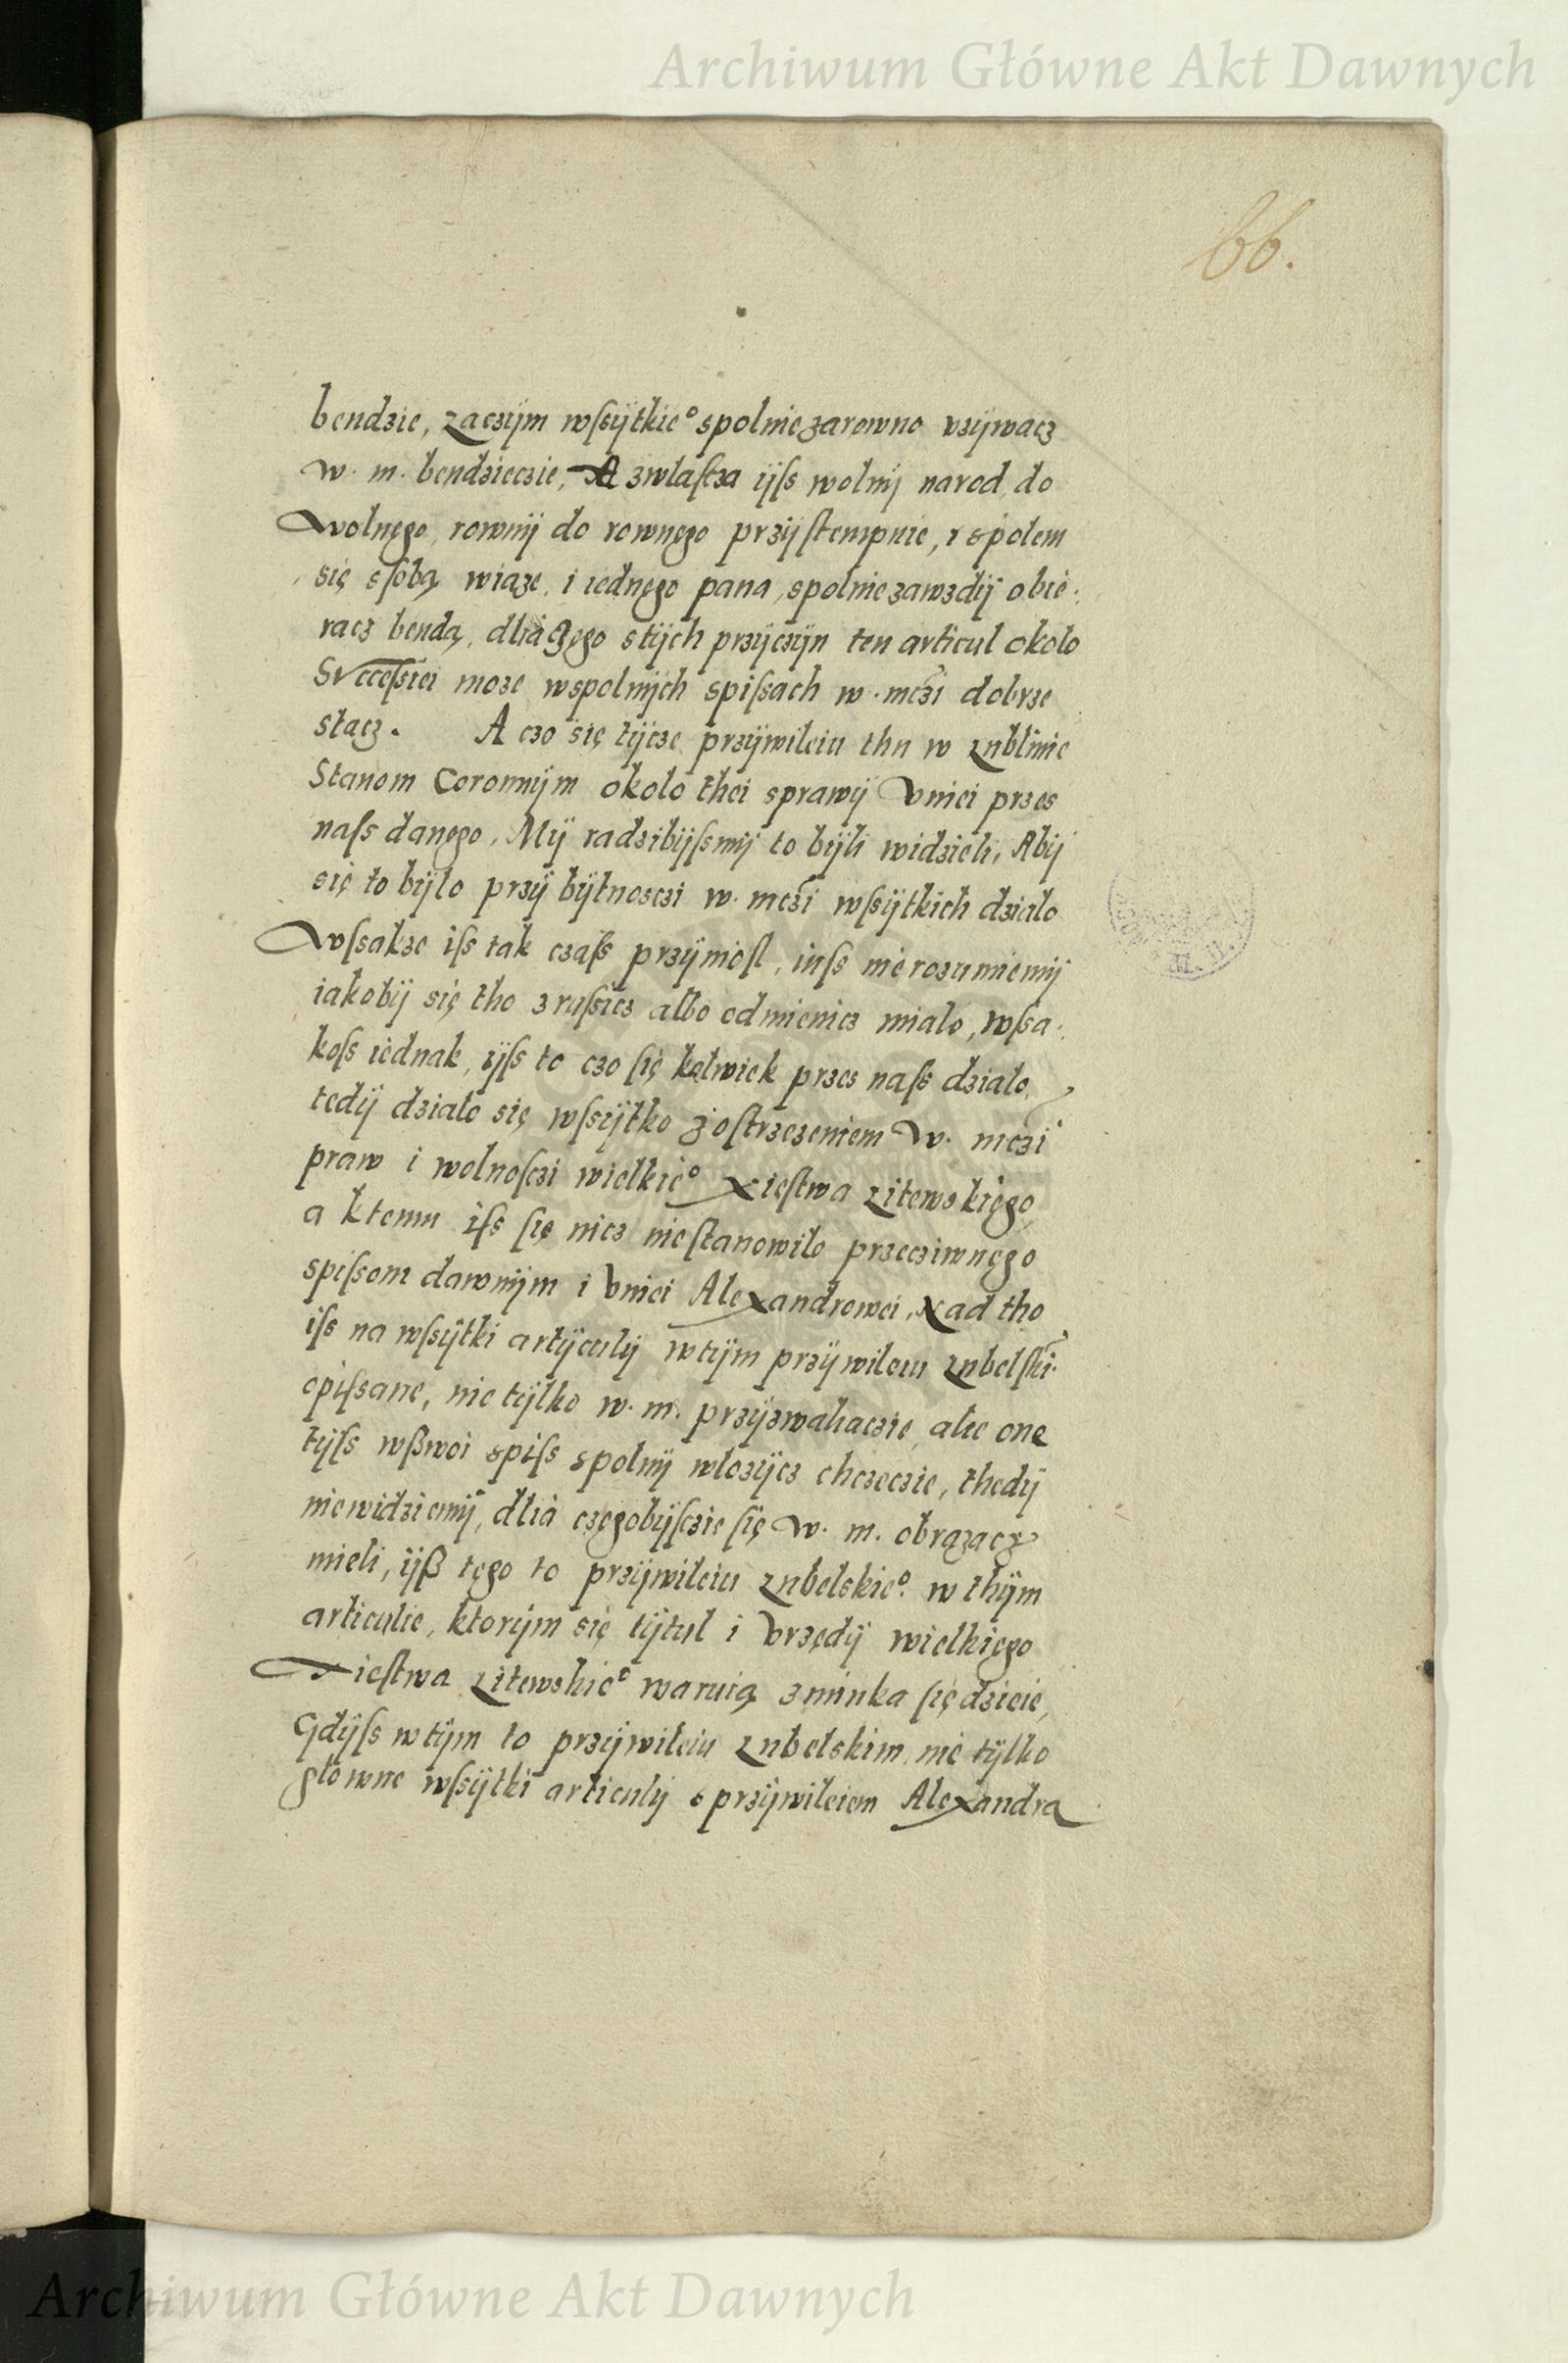 Archiwum Główne Akt Dawnych
66.
bendzie, zaczÿm wſsÿtkie° spolnie zarowno vzÿwacz
w. m. bendzieczie, A zwlaſcza ÿſs wolnÿ narod, do
wolnęgo, rownÿ do rownęgo przÿſtempuie, i spolem
się sſobą wiąze, i iednęgo pana, spolnie zawzdÿ obie:
racz bendą, dliaczęgo stÿch przÿczÿn ten articul okolo
Succeſsiei moze wspolnÿch spiſsach w. mczi dobrze
stacz. A czo się tÿcze przÿwileiu thu w Lublinie
Stanom Coronnÿm okolo thei sprawÿ Vniei przes
naſs danęgo, Mÿ radzibÿſsmÿ to bÿli widzieli, Abÿ
się to bÿlo przÿ bÿtnosczi w. mczi wſsÿtkich dzialo
Wſsakze iſs tak czaſs przÿnioſl, inſs nie rozumiemÿ
iakobÿ się tho zruſsicz albo odmienicz mialo, wſsa:
koſs iednak, ÿſs to czo ſię kolwiek przes naſs dzialo,
tedÿ dzialo się wſsÿtko z oſtrzezeniem w. mczi
praw i wolnoſczi wielkie° Xieſtwa Litewskięgo,
a ktemu iſs ſię nicz nieſtanowilo przecziwnęgo
spiſsom dawnÿm i Vniei Alexandrowei, Nad tho
iſs na wſsÿtki artÿculÿ wtÿm przÿwileiu Lubelſki:
opiſsane, nie tÿlko w. m. przÿzwaliaczie, alie one
tÿſs wßwoi spiſs spolnÿ wlozÿcz chczeczie, thedÿ
niewidziemÿ, dlia częgobÿſczie ſię w. m. obrazacz
mieli, ÿß tęgo to przÿwileiu Lubelskie°. w thÿm
articulie, ktorÿm się tÿtul i Vrzędÿ wielkięgo
Xieſtwa Litewskie° waruią zminka ſię dzieie,
Gdÿſs wtÿm to przÿwileiu Lubelskim, nie tÿlko
głowne wſsÿtki articulÿ s przÿwileiem Alexandra
Archiwum Główne Akt Dawnych